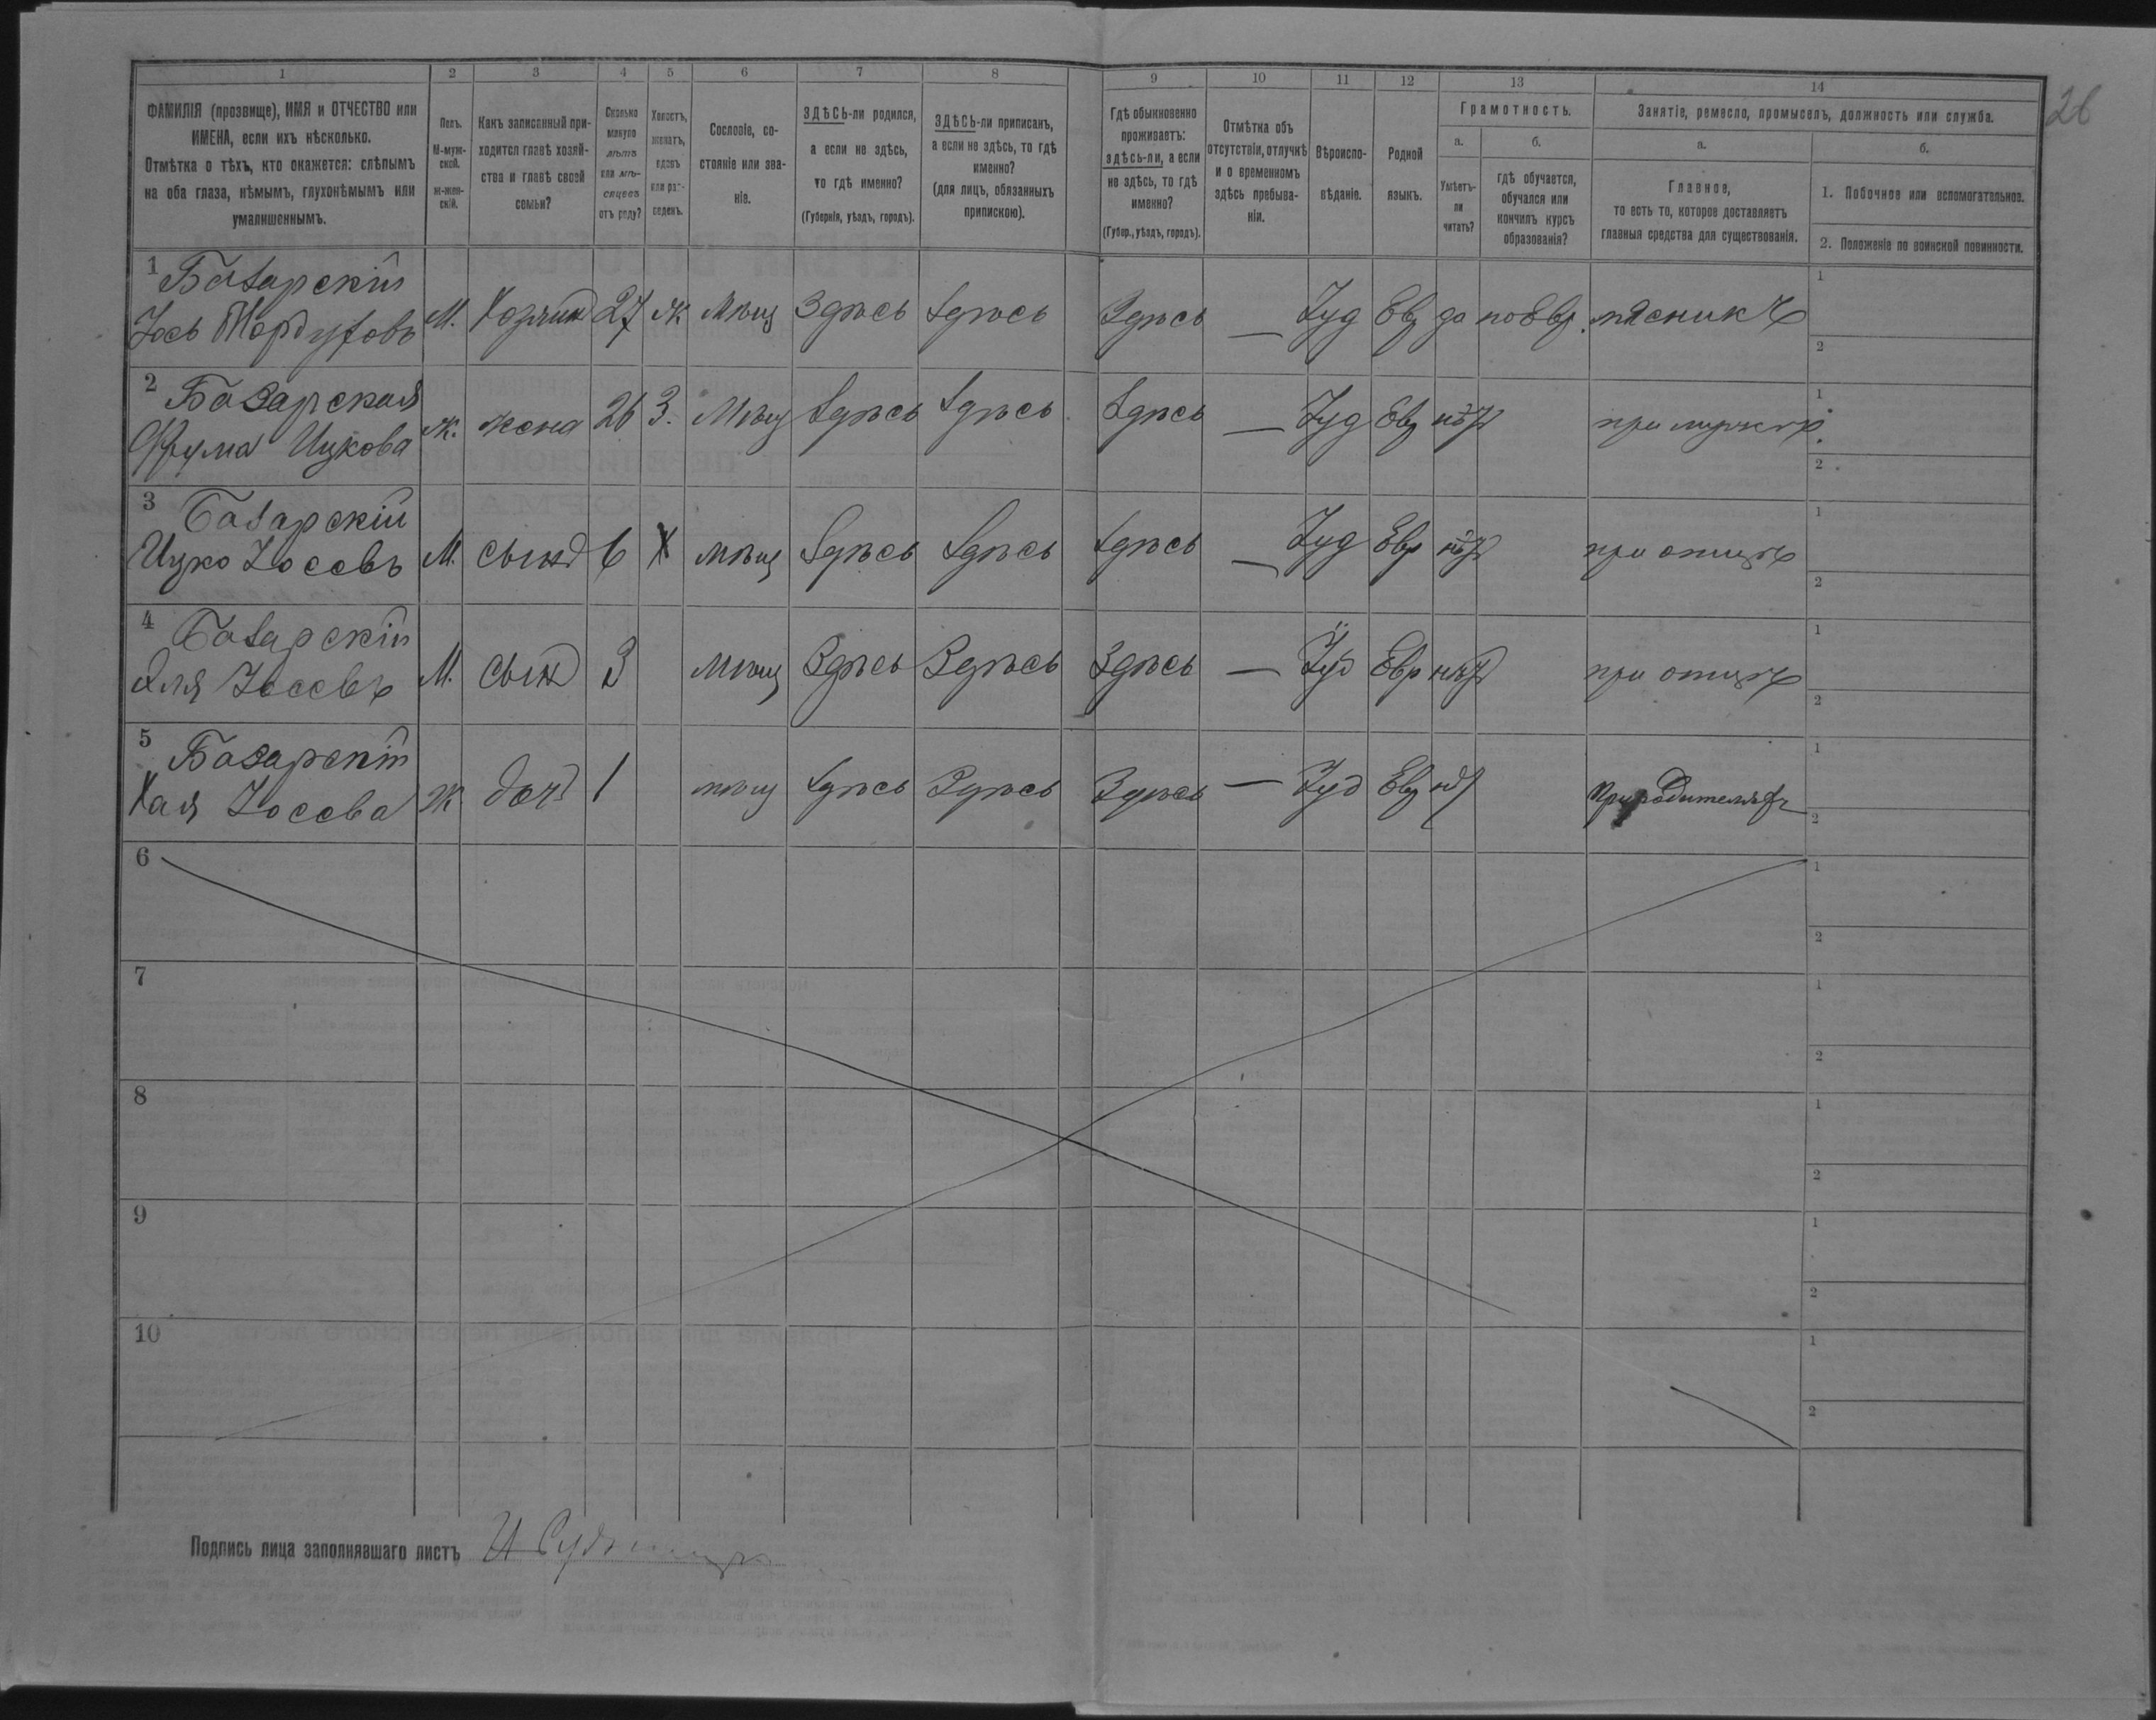 1 2 3 4 5 6 7 8 9 10 11 12 13 14
26
ФАМИЛІЯ (прозвище), ИМЯ и ОТЧЕСТВО или
ИМЕНА, если ихъ нѣсколько.
Отмѣтка о тѣхъ, кто окажется: слѣпымъ
на оба глаза, нѣмымъ, глухонѣмымъ или
умалишеннымъ.
Полъ.
М-муж-
ской.
ж-жен-
скій.
Какъ записанный при-
ходится главѣ хозяй-
ства и главѣ своей
семьи?
Сколько
минуло
лѣтъ
или мѣ-
сяцевъ
отъ роду?
Холостъ,
женатъ,
вдовъ
или раз-
веденъ.
Сословіе, со-
стояніе или зва-
ніе.
ЗДѢСЬ-ли родился,
а если не здѣсь,
то гдѣ именно?
(Губернія, уѣздъ, городъ).
ЗДѢСЬ-ли приписанъ,
а если не здѣсь, то гдѣ
именно?
(для лицъ, обязанныхъ
припискою).
Гдѣ обыкновенно
проживаетъ:
здѣсь-ли, а если
не здѣсь, то гдѣ
именно?
(Губер., уѣздъ, городъ).
Отмѣтка объ
отсутствіи, отлучкѣ
и о временномъ
здѣсь пребыва-
ніи.
Вѣроиспо-
вѣданіе.
Родной
языкъ.
Грамотность.
а.
Умѣетъ-
ли
читать?
б.
гдѣ обучается,
обучался или
кончилъ курсъ
образованія?
Занятіе, ремесло, промыселъ, должность или служба.
а.
Главное,
то есть то, которое доставляетъ
главныя средства для существованія.
б.
1. Побочное или вспомогательное.
2. Положеніе по воинской повинности.
1 Базарскій
Іось Мордуховъ М. Хозяинъ 27 ж мѣщ Здѣсь Здѣсь Здѣсь — Іуд Евр да по Евр. мясникъ 1 2
2 Базарская
Фрума Ицкова ж. жена 26 З. мѣщ Здѣсь Здѣсь Здѣсь — Іуд Евр нѣтъ при мужѣ 1 2
3 Базарскій
Ицко Іосевъ М. сынъ 6 Х мѣщ Здѣсь Здѣсь Здѣсь — Іуд Евр нѣтъ при отцѣ 1 2
4 Базарскій
Эля Іосевъ М. сынъ 3 мѣщ Здѣсь Здѣсь Здѣсь — Іуд Евр нѣтъ при отцѣ 1 2
5 Базарскій
Хая Іосева ж дочь 1 мѣщ Здѣсь Здѣсь Здѣсь — Іуд Евр нѣт При родителяхъ 1 2
6 1 2
7 1 2
8 1 2
9 1 2
10 1 2
Подпись лица заполнявшаго листъ И